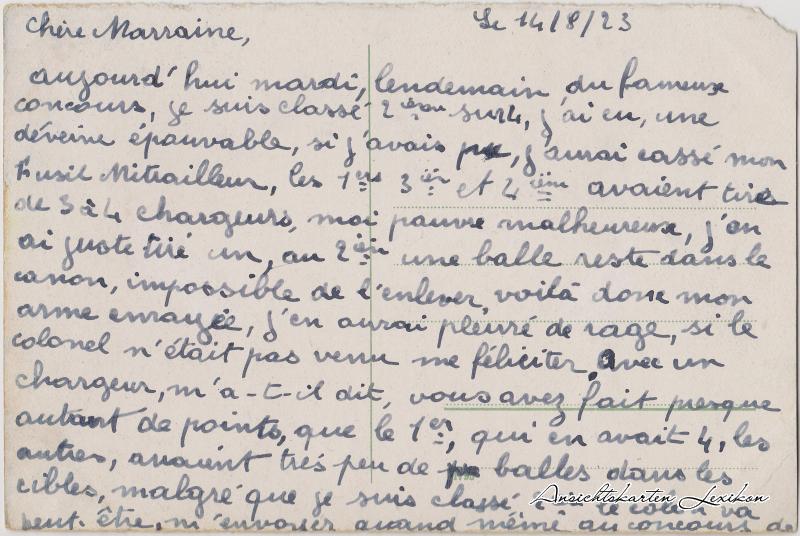 Le 14/8/23
Chère Marraine,
aujourd'hui mardi, lendemain du fameux
concours, je suis classé 2ième sur 4, j'ai eu, une
déveine épauvable, si j'avais pu, j'aurai cassé mon
Fusil Mitrailleur, les 1ers 3ièr et 4ième avaient tirés
de 3 à 4 chargeurs, moi pauvre malheureux, j'en
ai juste tiré un, au 2ièm une balle reste dans le
canon, impossible de l'enlever, voilà donc mon
arme enrayée, j'en aurai pleuré de rage, si le
colonel n'était pas venu me féliciter, avec un
chargeur, m'a-t-il dit, vous avez fait presque
autant de points, que le 1er, qui en avait 4, les
autres, avaient très peu de balles dans les
cibles, malgré que je suis classé le colon va
peut-être, m'envoyer quand même au concours de
Ansichtskarten Lexikon